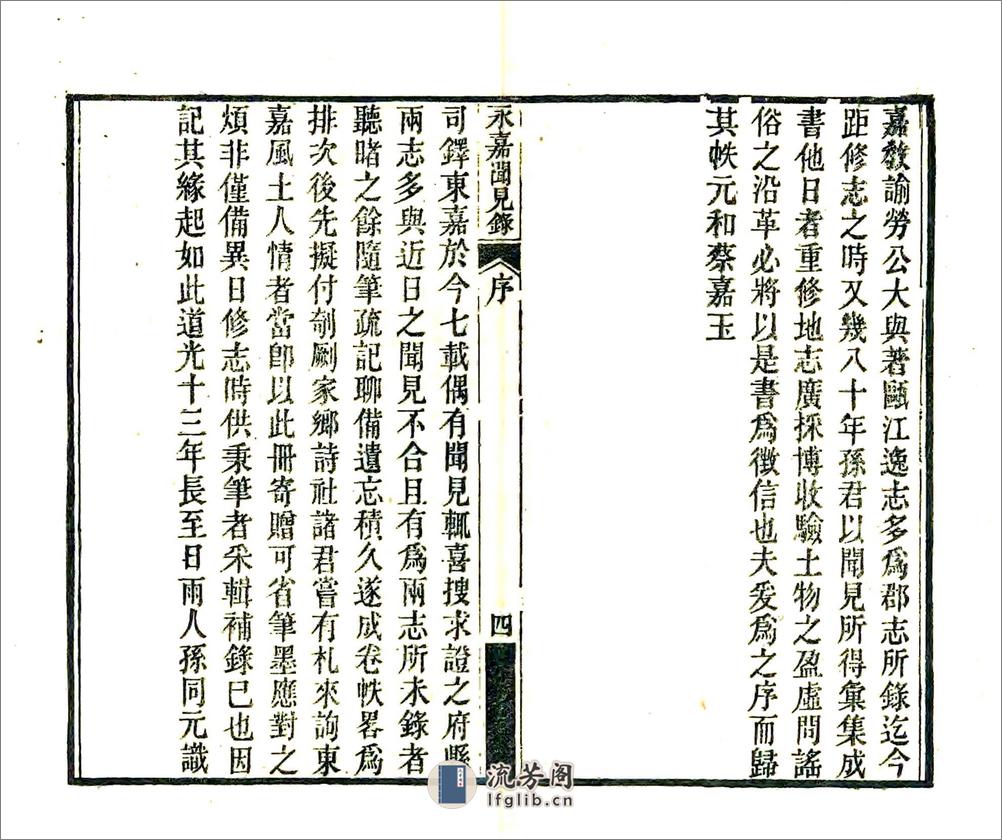 嘉教諭勞公大與著甌江逸志多爲郡志所錄迄今
距修志之時又幾八十年孫君以聞見所得彙集成
書他日者重修地志廣採博收驗土物之盈虛問謠
俗之沿革必將以是書爲徵信也夫爰爲之序而歸
其帙元和蔡嘉玉
永嘉聞見錄 序 四
司鐸東嘉於今七載偶有聞見輒喜搜求證之府縣
兩志多與近日之聞見不合且有爲兩志所未錄者
聽睹之餘隨筆疏記聊備遺忘積久遂成卷帙畧爲
排次後先擬付剞劂家鄉詩社諸君嘗有札來詢東
嘉風土人情者當卽以此冊寄贈可省筆墨應對之
煩非僅備異日修志時供秉筆者采輯補錄已也因
記其緣起如此道光十三年長至日雨人孫同元識
流芳阁
lfglib.cn